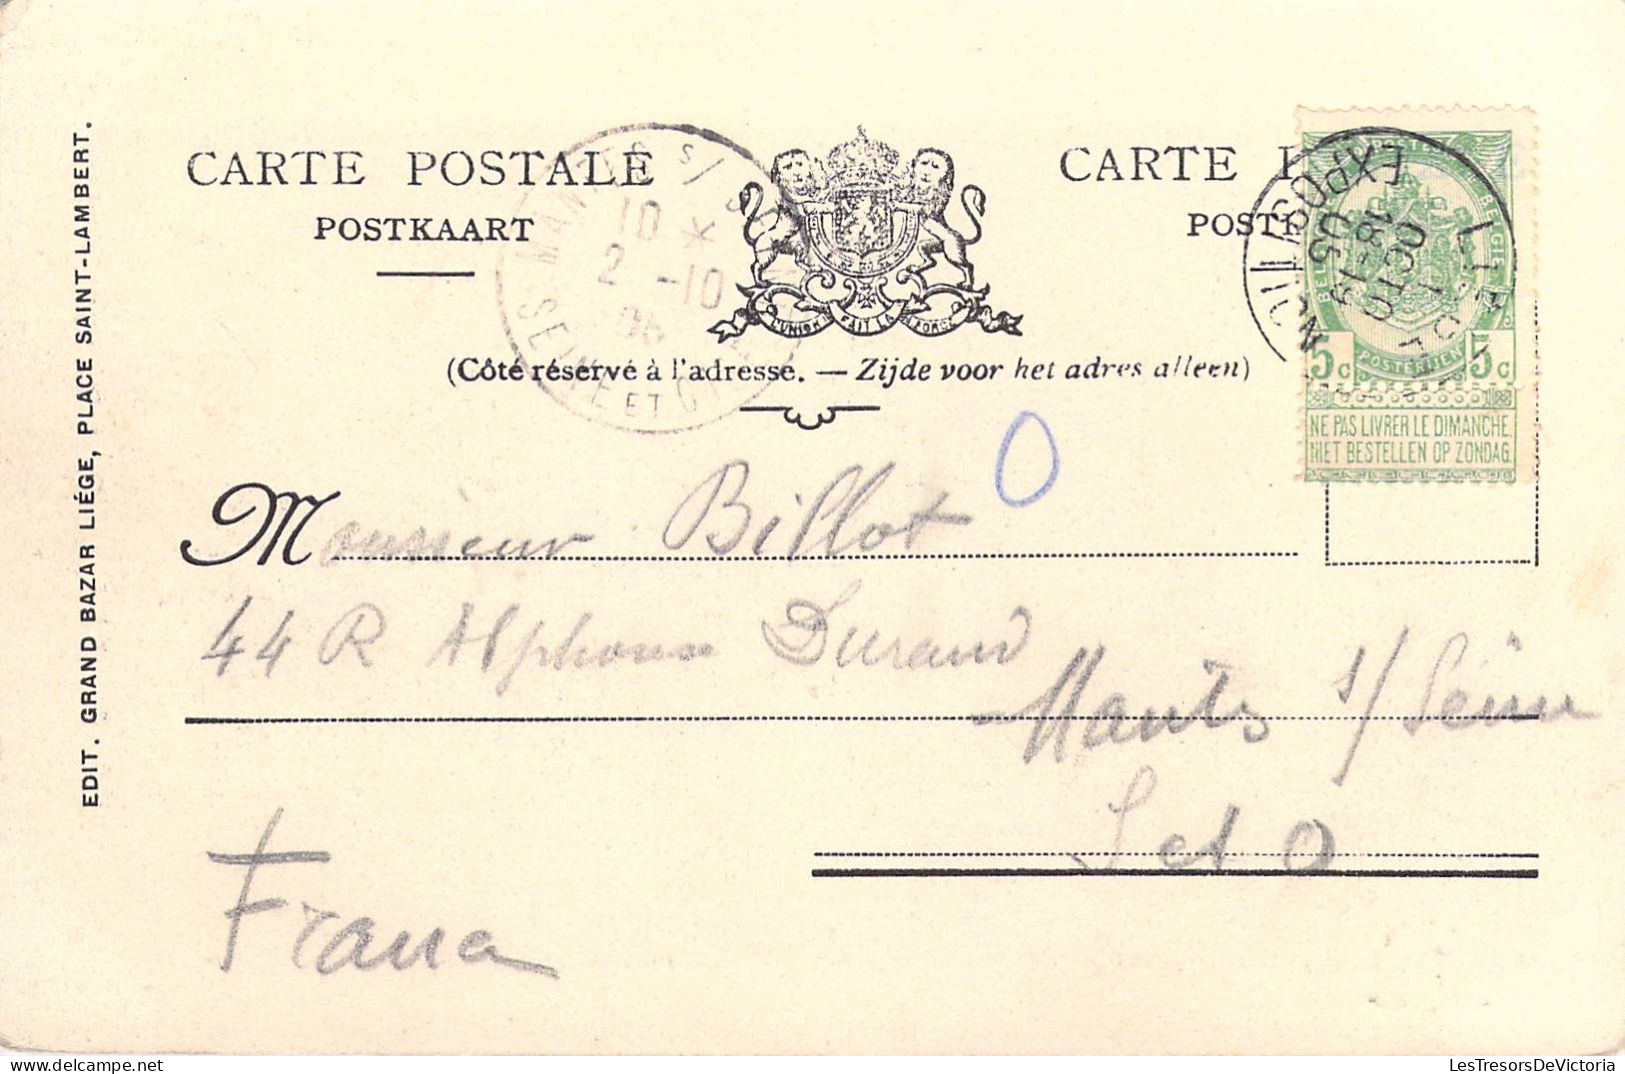 CARTE POSTALE
POSTKAART
CARTE P
POSTK
L'UNION FAIT LA FORCE
(Côté réservé à l'adresse. — Zijde voor het adres alleen)
EDIT. GRAND BAZAR LIÉGE, PLACE SAINT-LAMBERT.
MANTES S/ SEINE
10 *
2 -10
05
SEINE ET OISE
LIÉGE
EXPOSITION
18-19
1 OCTO
05
BELGE
POSTERIJEN
5 c 5 c
NE PAS LIVRER LE DIMANCHE
NIET BESTELLEN OP ZONDAG
Monsieur Billot
44 R Alphonse Durand
Mantes s/ Seine
S et O
France
LesTresorsDeVictoria